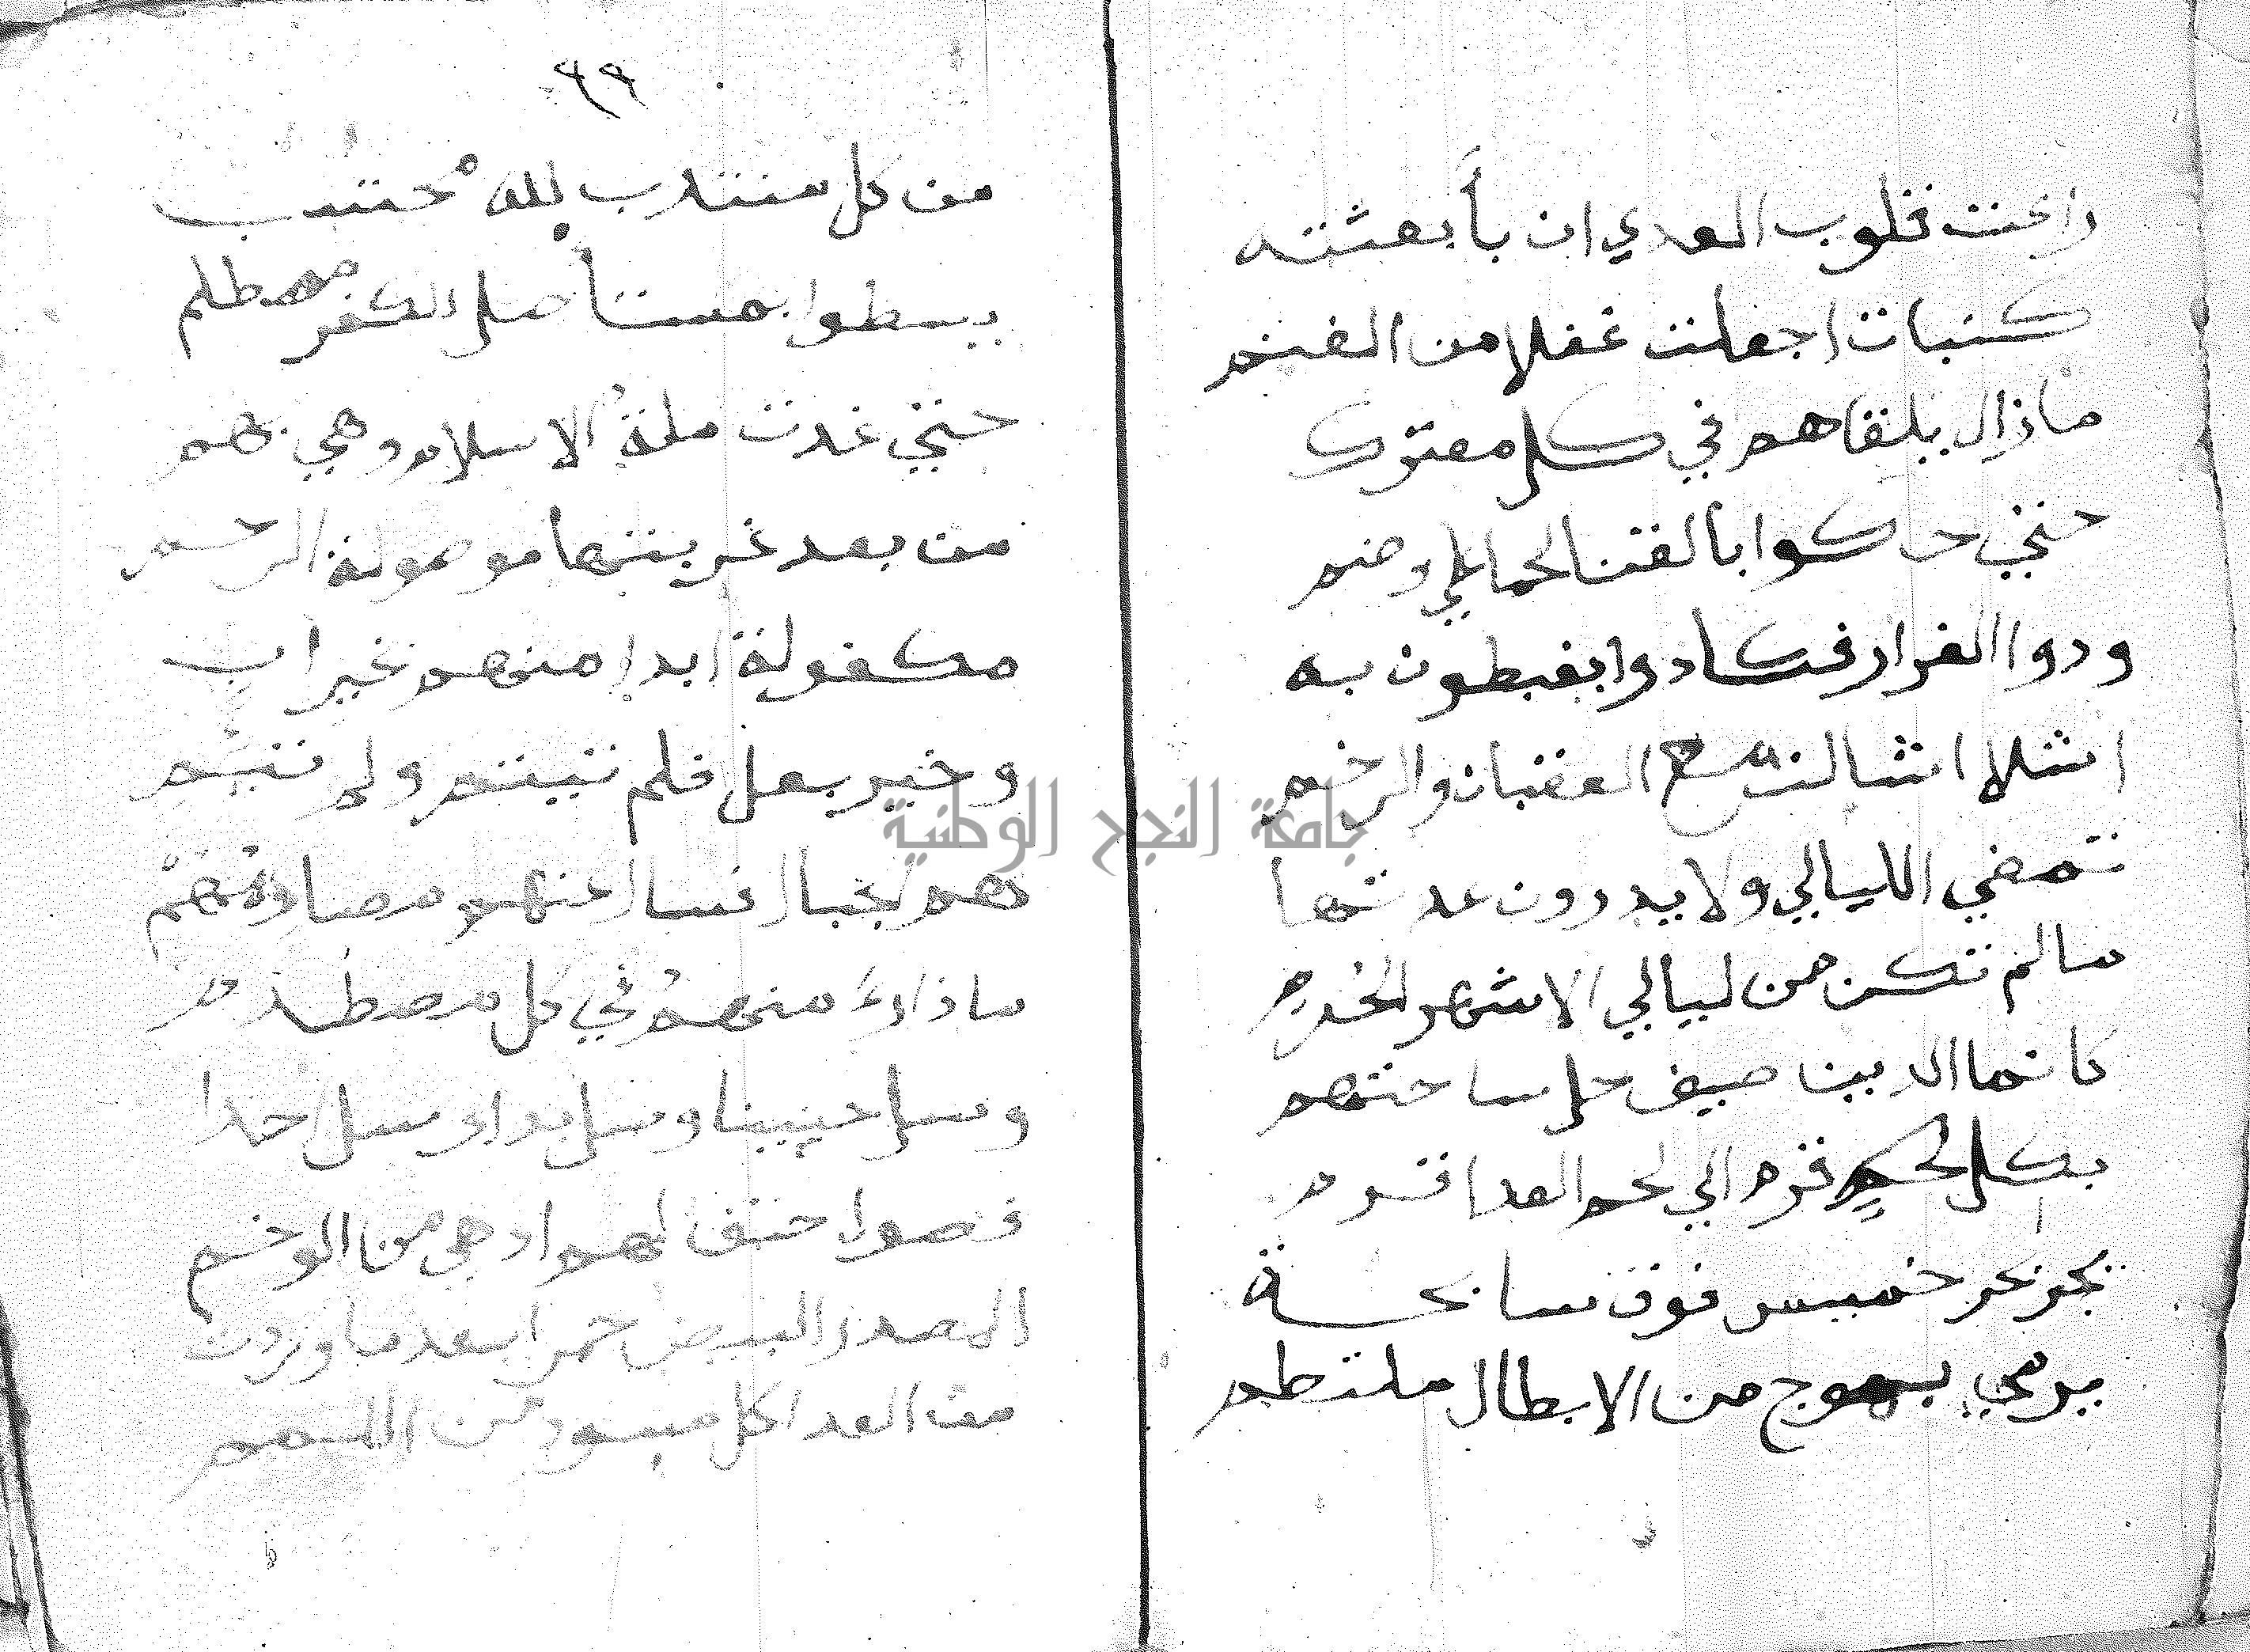 راعت قلوب العدي ان بأ بعثته
كنبات اجعلت غفلا من الغنم
مازال يلقاهم في كل معترك
حتي حاكوا بالقنا لحما علي وضم
ودوا الفرار فكادوا يغبطون به
اشلا اشالت مع العقبان والرخم
تمضي الليالي ولا يدرون عدتها
مالم تكن من ليالي الاشهر الحرم
كانما الدين ضيف حل ساحتهم
بكل قرم الي لحم العدا قرم
يجر بحر خميس فوق سابحة
يرمي بموج من الابطال ملتطم
٩٩
من كل منتدب لله محتسب
يسطوا بمستأصل للكفر مصطلم
حتي غدت ملة الاسلام وهي بهم
من بعد غربتها موصولة الرحم
مكفولة ابدا منهم بخير اب
وخير بعل فلم تيتم ولم تيم
هم لجبال فسال عنهم مصادمهم
ماذا راء منهم في كل مصطدم
وسل حنينا وسل بدرا وسل احدا
فصول حتف لهم ادهي من الوخم
المصدر البيض حمرا بعد ما وردت
من العدا كل مسود من اللمم
جامعة النجاح الوطنية